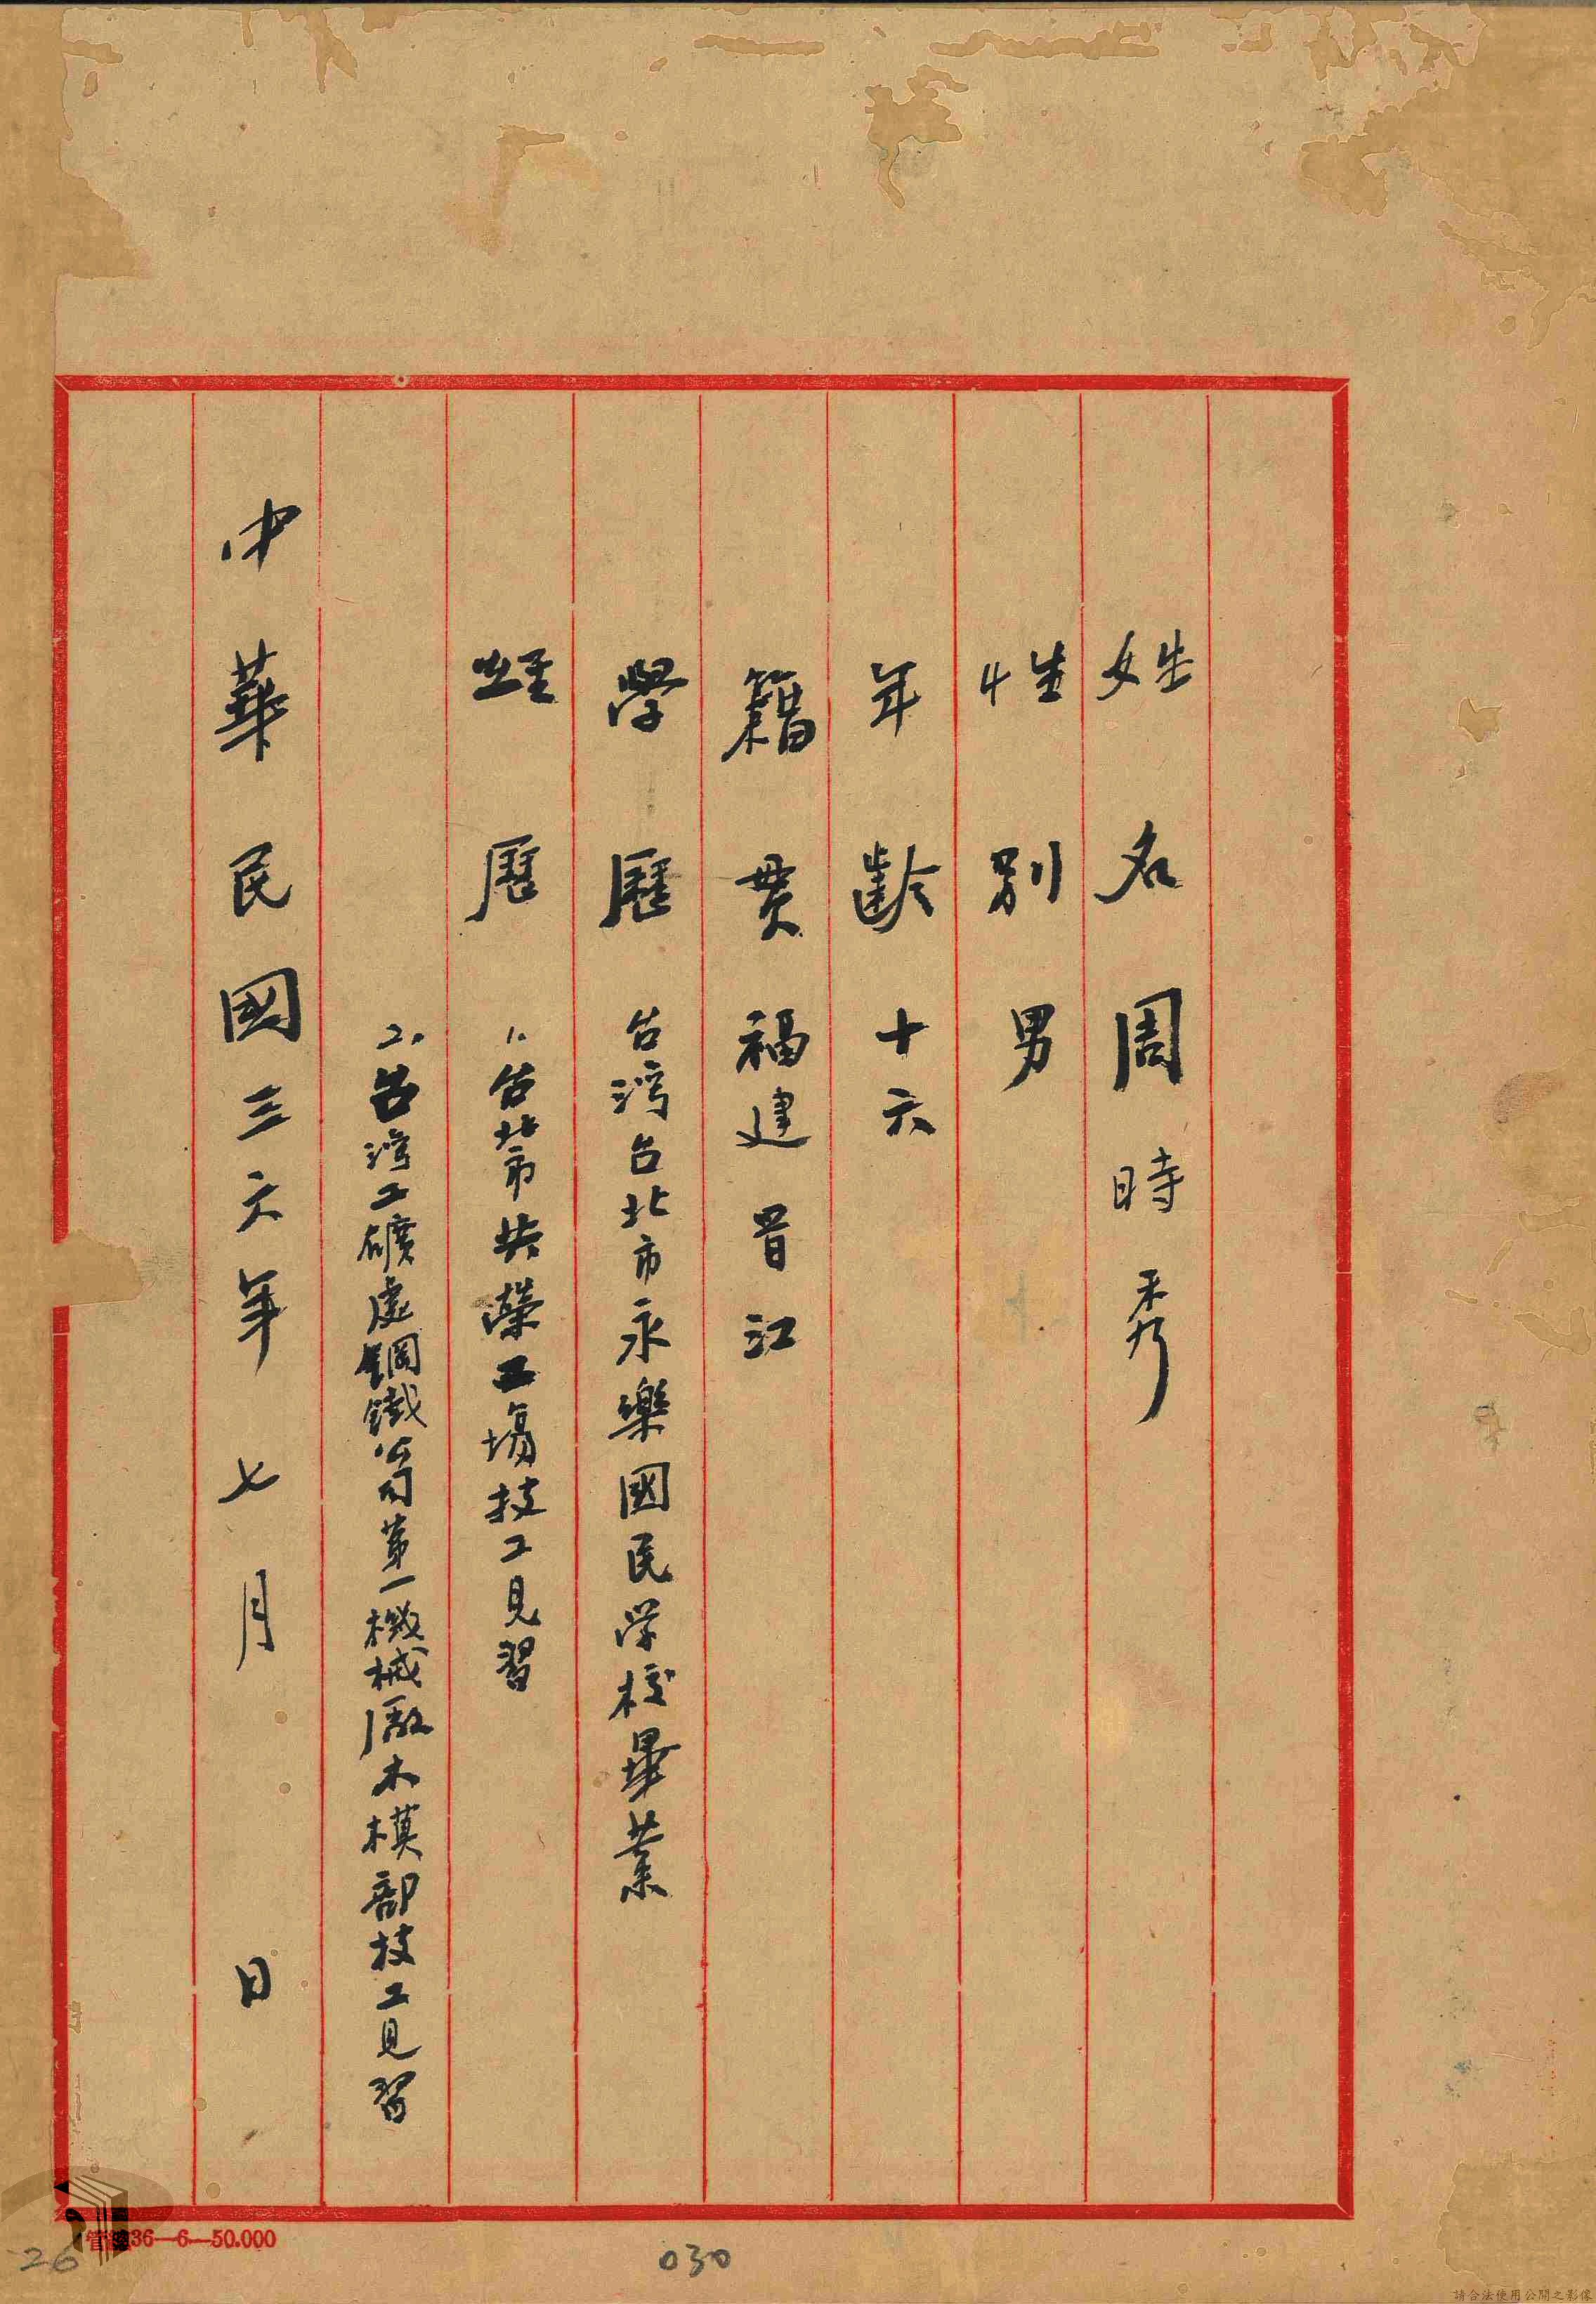 姓名周時秀
性別男
年齡十六
籍貫福建晋江
學歷台湾台北市永樂國民学校畢業
經歷1.台北第共榮工場技工見習
2.台湾工礦處鋼鐵公司第一機械廠木模部技工見習
中華民國三六年七月 日
36—6—50.000
26
030
請合法使用公開之影像